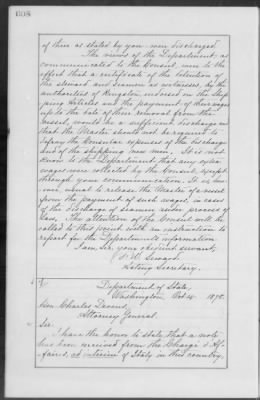 608
of them as stated by you were discharged.
The views of the Department, as
communicated to the Consul, were to the
effort that a certificate of the detention of
the steward and seaman as witnesses, by the
authorities of Kingston, indorsed on the Ship-
ping Articles and the payment of their wages
up to the date of their removal from the
vessel, would be a sufficient discharge and
that the Master should not be required to
defray the Consular expenses of the discharge
and of the shipping new men. It is not
known to the Department that any extra
wages were collected by the Consul, except
through your communication. It is, how-
ever, usual to release the Master of a vessel
from the payment of such wages, in cases
of the discharge of seamen under process of
law. The attention of the Consul will be
called to this point with an instruction to
report for the Department's information.
I am, Sir, your obedient servant,
F. W. Seward
Acting Secretary.
Department of State,
Washington, Oct. 1878.
Hon. Charles Devens,
Attorney General.
Sir:
I have the honor to state that a note
has been received from the Chargé d'Af-
faires, ad interim of Italy in this country,